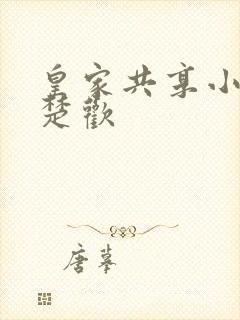 皇家共享小
楚歡
唐摹